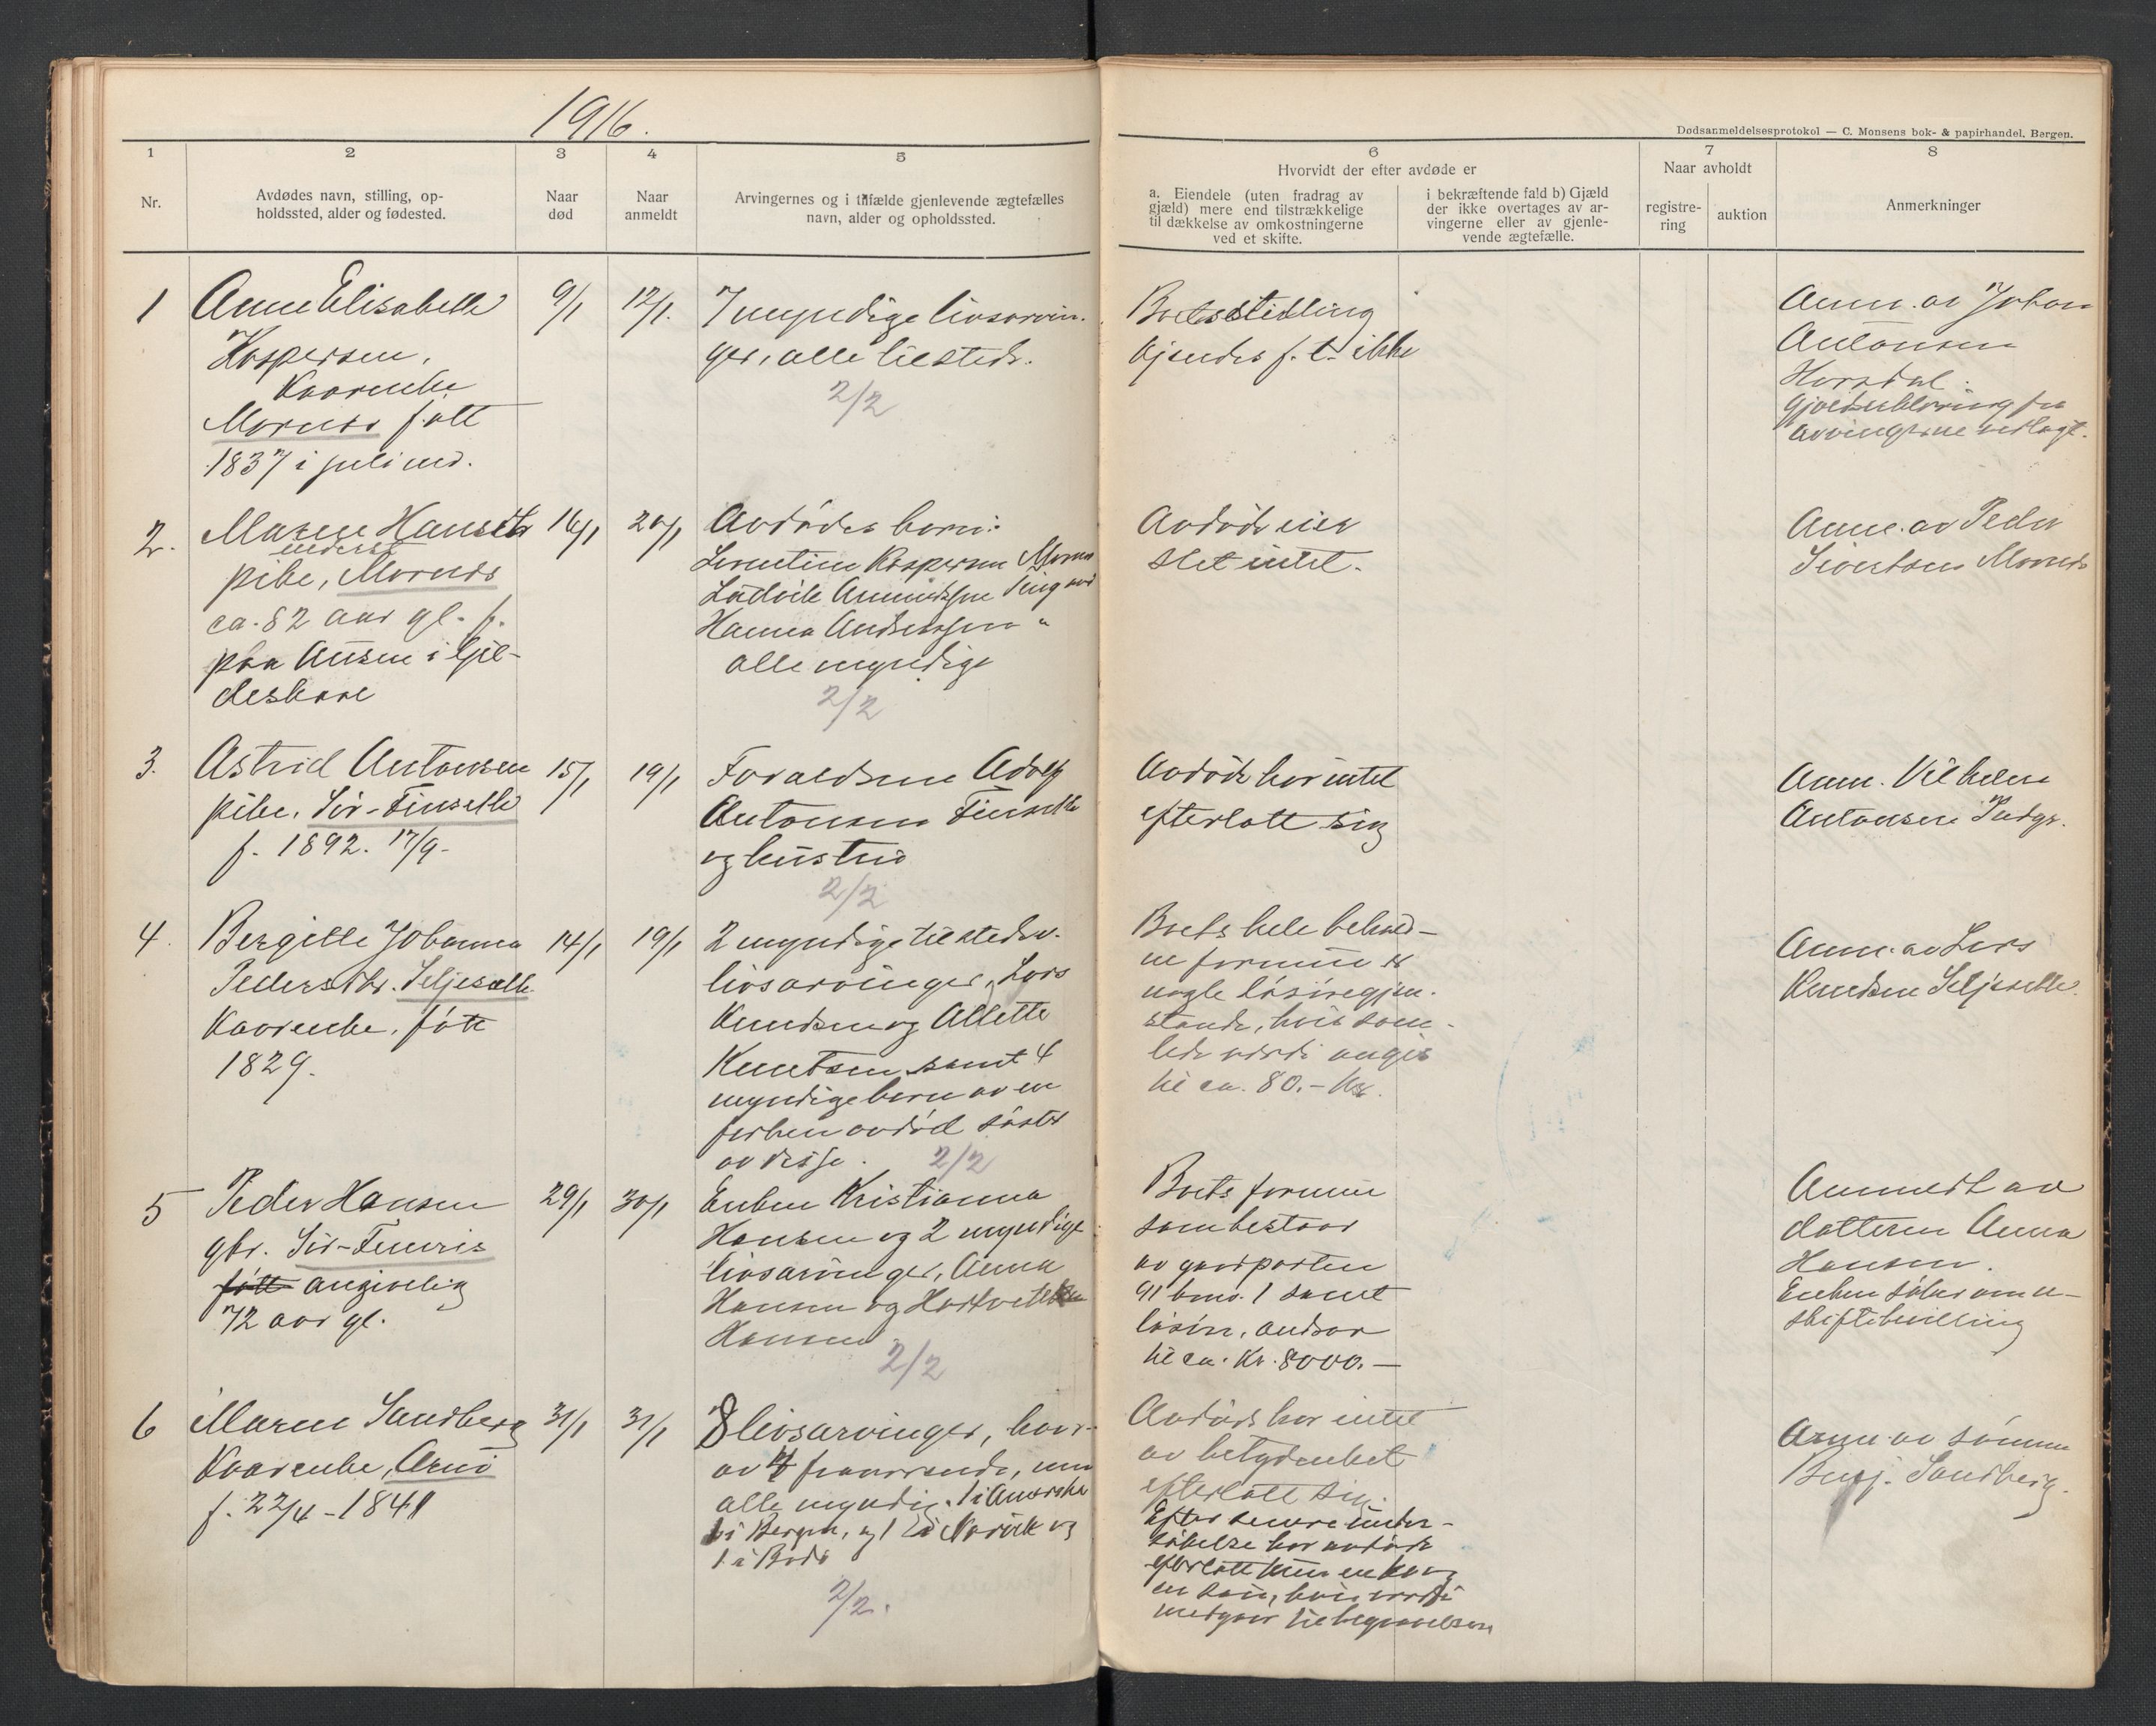 1916.
Dødsanmeldelsesprotokol — C. Monsens bok- & papirhandel, Bergen.
1 2 3 4 5 6 7 8
Nr.
Avdødes navn, stilling, op-
holdssted, alder og fødested.
Naar
død
Naar
anmeldt
Arvingernes og i tilfælde gjenlevende ægtefælles
navn, alder og opholdssted.
Hvorvidt der efter avdøde er
a. Eiendele (uten fradrag av
gjæld) mere end tilstrækkelige
til dækkelse av omkostningerne
ved et skifte.
i bekræftende fald b) Gjæld
der ikke overtages av ar-
vingerne eller av gjenle-
vende ægtefælle.
Naar avholdt
registre-
ring
auktion
Anmerkninger
1
Anne Elisabeth
Kaspersen,
Kaarenke
Mornes født
1837 i juli md.
9/1
12/1.
7 myndige livsarvin-
ger, alle tilsteds.
2/2
Boets stilling
kjendes f. t. ikke
Anm. av Johan
Antonsen
Horsdal.
Gjældserklæring fra
arvingerne vedlagt.
2.
Maren Hansdtr
inderst
pike, Mornes
ca. 82 aar gl. f.
paa Ausen i Gil-
deskaal
16/1
20/1
Avdødes børn:
Lorentine Kaspersen Mornes
Ludvik Amundsen
Hanna Andersen "
alle myndige
2/2
Avdøde eier
slet intet.
Anm. av Peder
Sivertsen Mornes
3.
Astrid Antonsen
pike, Sör-Finsetle
f. 1892. 17/9.
15/1
19/1
Forældrene Adolf
Antonsen Finsetle
og hustru
2/2
Avdøde har intet
efterlatt sig
Anm. Vilhelm
Antonsen Indyr.
4.
Bergitte Johanna
Pedersdtr. Seljesetle
Kaarenke, født
1829.
14/1
19/1
2 myndige tilstedev.
livsarvinger, Lars
Knudsen og Allette
Knutsen samt 4
myndige børn av en
forhen avdød søster
av disse.
2/2
Boets hele behold-
ne formue er
nogle løsøregjen-
stande, hvis sam-
lede værdi angis
til ca. 80.- Kr.
Anm. av Lars
Knudsen Seljesetle.
5
Peder Hansen
gbr. Sör-Finnes
født angivelig
72 aar gl.
29/1
30/1
Enken Kristianna
Hansen og 2 myndige
livsarvinger, Anna
Hansen og
Hansen
2/2
Boets formue
som bestaar
av gaardparten
91 bno. 1 samt
løsøre, andrar
til ca. Kr. 8000.—
Anmeldt av
datteren Anna
Hansen.
Enken søker om u-
skiftebevilling
6
Maren Sandberg
Kaarenke, Arnö
f. 22/4 - 1841
31/1
31/1
8 livsarvinger, hvor-
av 4 fraværende, men
alle myndig. 1 i Amerika
1 i Bergen, og 1 i Narvik og
1 i Bodø
2/2.
Avdøde har intet
av betydenhet
efterlatt sig.
Efter senere under-
søkelse har avdøde
efterlatt kun en ko og
en sau, hvis værdi
medgaar til begravelsen
Anm. av sønnen
Benj. Sandberg.